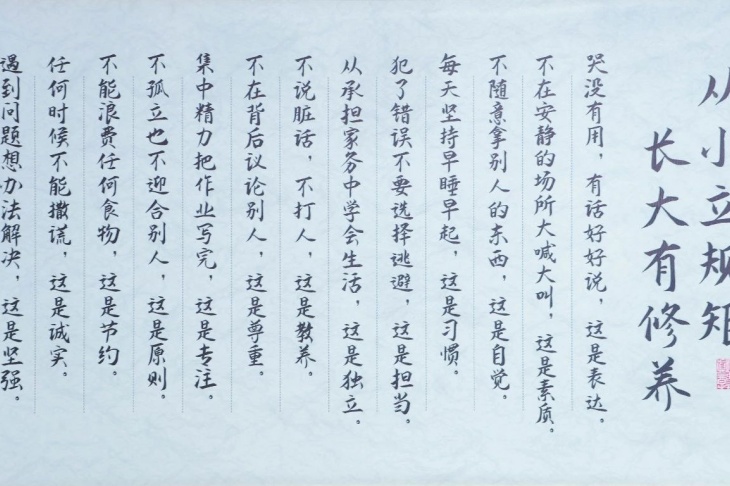 从小立规矩
长大有修养
哭没有用，有话好好说，这是表达。
不在安静的场所大喊大叫，这是素质。
不随意拿别人的东西，这是自觉。
每天坚持早睡早起，这是习惯。
犯了错误不要选择逃避，这是担当。
从承担家务中学会生活，这是独立。
不说脏话，不打人，这是教养。
不在背后议论别人，这是尊重。
集中精力把作业写完，这是专注。
不孤立也不迎合别人，这是原则。
不能浪费任何食物，这是节约。
任何时候不能撒谎，这是诚实。
遇到问题想办法解决，这是坚强。